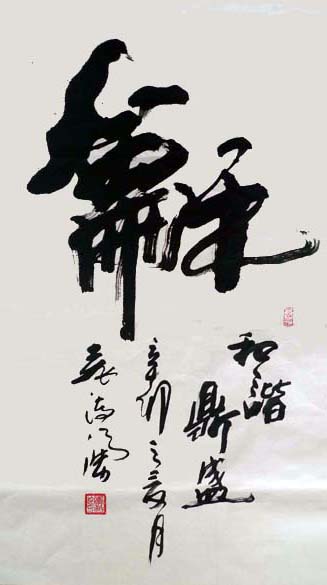 龢
和諧
鼎盛
辛卯之夏月